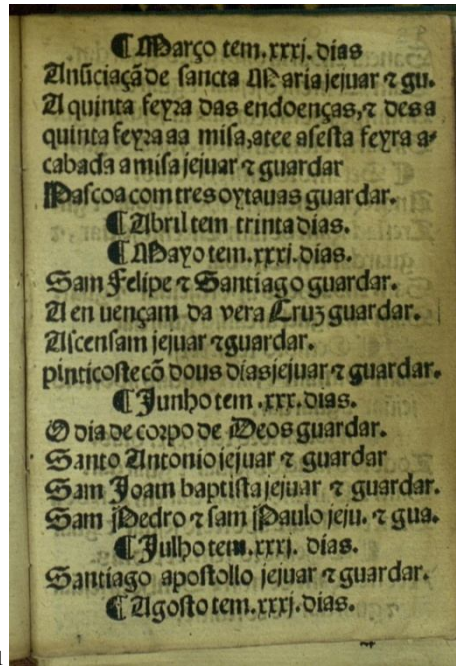 ¶ Março tem.xxxj. dias
Anũciaçã de sancta Maria jejuar ⁊ gu.
A quinta feyra das endoenças,⁊ des a
quinta feyra aa misa,atee a sesta feyra a⸗
cabada a misa jejuar ⁊ guardar
Pascoa com tres oytauas guardar.
¶ Abril tem trinta dias.
¶ Mayo tem.xxxj. dias.
Sam Felipe ⁊ Santiago guardar.
A en uençam da vera Cruz guardar.
Ascensam jejuar ⁊ guardar.
pinticoste cõ dous dias jejuar ⁊ guardar.
¶ Junho tem .xxx. dias.
O dia de corpo de Deos guardar.
Santo Antonio jejuar ⁊ guardar
Sam Joam baptista jejuar ⁊ guardar.
Sam Pedro ⁊ sam Paulo jeju. ⁊ gua.
¶ Julho tem.xxxj. dias.
Santiago apostollo jejuar ⁊ guardar.
¶ Agosto tem.xxxj. dias.